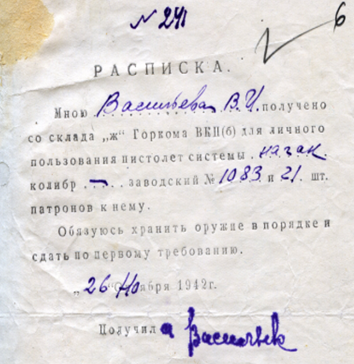 № 291
6
РАСПИСКА.
Мною Васильева В.И. получено
со склада „Ж" Горкома ВКП(б) для личного
пользования пистолет системы казак
колибр — заводский № 1083 и 21 шт.
патронов к нему.
Обязуюсь хранить оружие в порядке и
сдать по первому требованию.
„26" Ноября 1942г.
Получил а